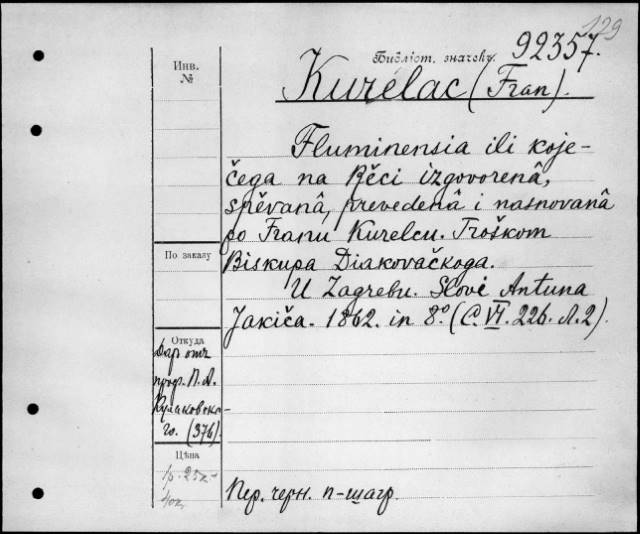 129
Библіот. значекъ 92357.
Инв.
№
Kurelac (Fran).
Fluminensia ili koje-
čega na Rěci izgovorenâ,
spěvanâ, prevedenâ i nasnovanâ
po Franu Kurelcu. Troškom
Biskupa Diakovačkoga.
U Zagrebu. Slovi Antuna
Jakića. 1862. in 8.º (C. VI. 226. Л. 2).
По заказу
Откуда
Даръ отъ
проф. П. А.
Кулаковска-
го. (376).
Цѣна
1 р. 25 к.
40 к.
Пер. черн. п-шагр.